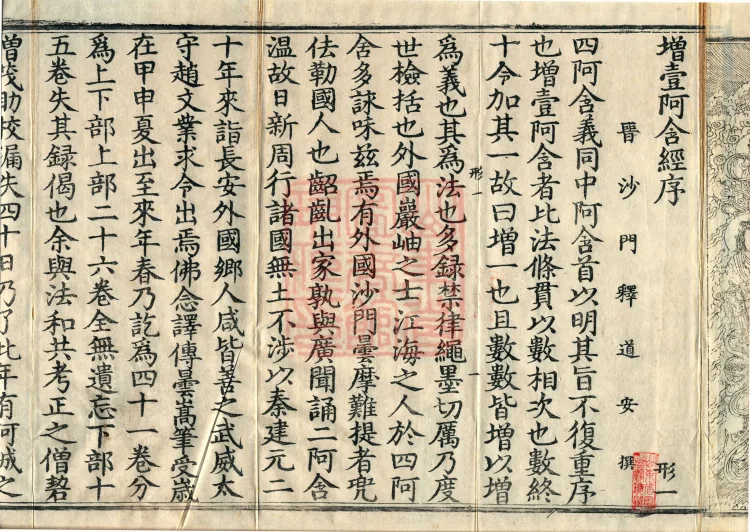 增壹阿含經序
形一
晉沙門釋道安撰
四阿含義同中阿含首以明其旨不復重序
也增壹阿含者比法條貫以數相次也數終
十令加其一故曰增一也且數數皆增以增
形一
一
為義也其為法也多録禁律繩墨切厲乃度
世檢括也外國巖岫之士江海之人於四阿
舍多詠味茲焉有外國沙門曇摩難提者兜
佉勒國人也齠齓出家孰與廣聞誦二阿含
温故日新周行諸國無土不涉以秦建元二
十年來詣長安外國鄉人咸皆善之武威太
守趙文業求令出焉佛念譯傳曇嵩筆受歲
在甲申夏出至來年春乃訖為四十一卷分
為上下部上部二十六卷全無遺忘下部十
五卷失其録偈也余與法和共考正之僧䂮
僧茂助校漏失四十日乃了此年有阿城之